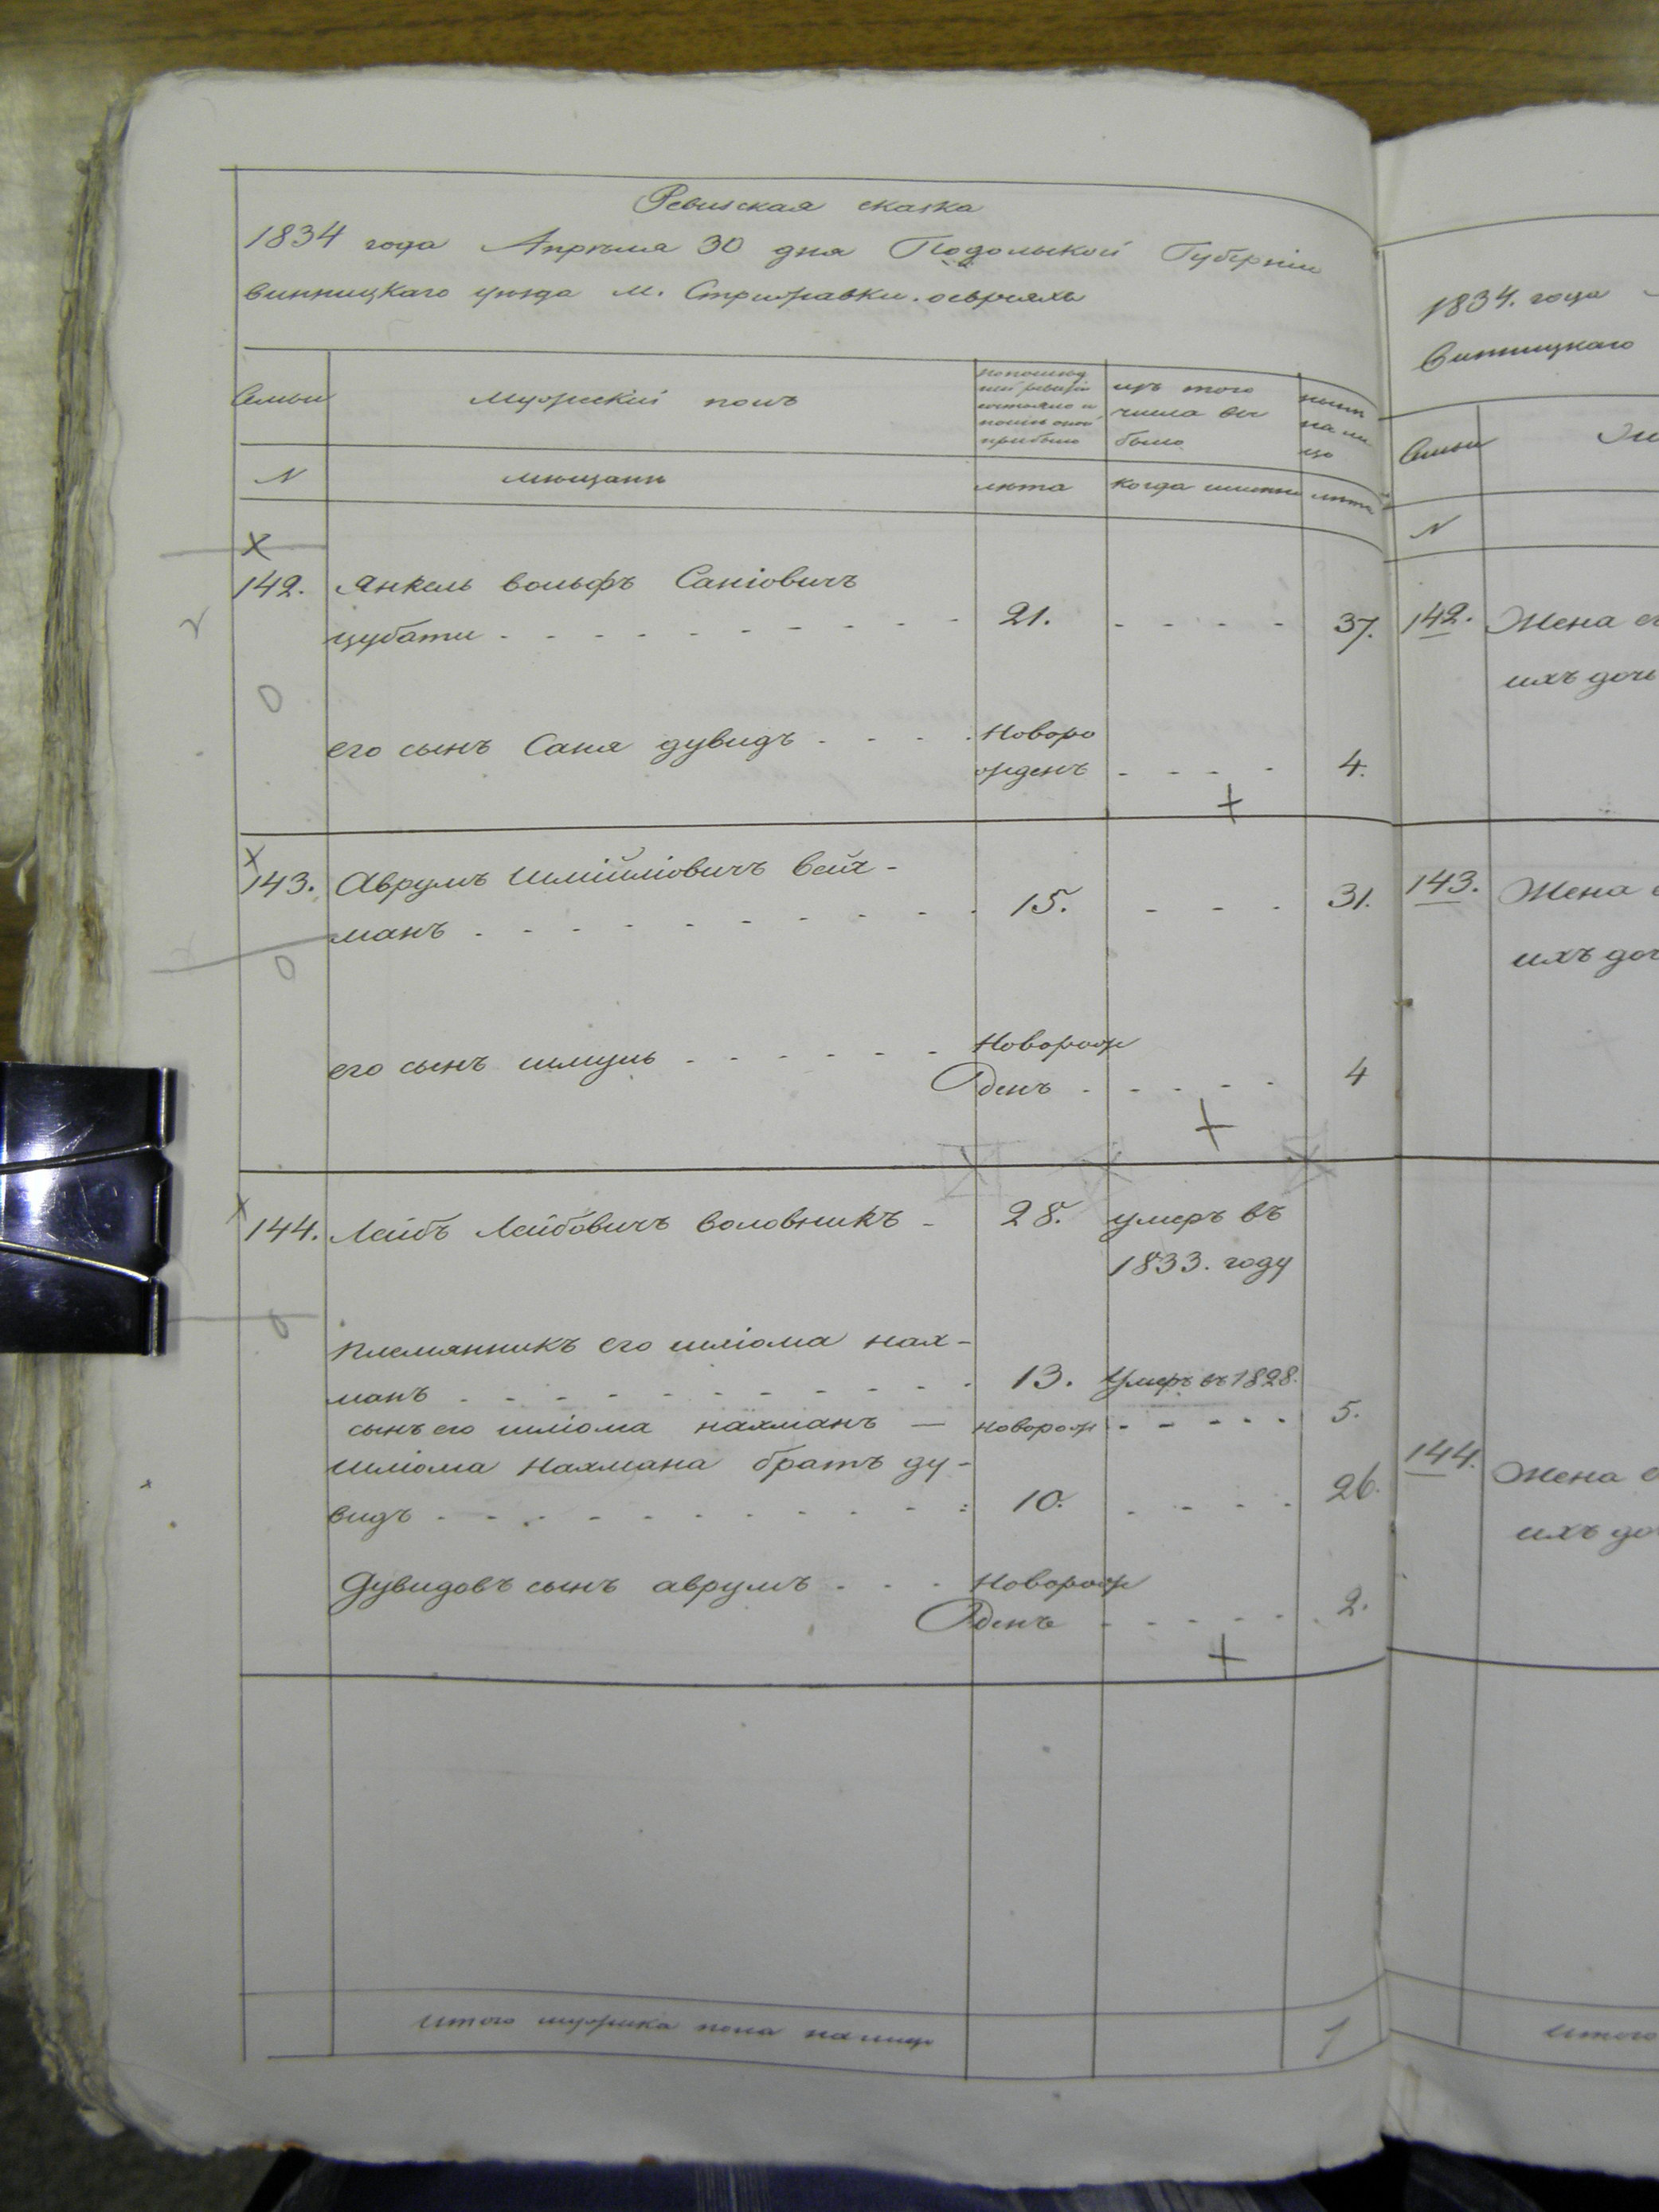 Ревизская сказка
1834 года Апрѣля 30 дня Подольской Губерніи
винницкаго уѣзда м. Стрижавки о евреяхъ
Семьи
Мужескій полъ
изъ того
числа вы
было
нынѣ
на ли
цо
N
мѣщане
лѣта
когда именно
лѣта
142. Янкель вольфъ Саніовичъ
цубати - - - 21. - - - - 37.
его сынъ Саня дувидъ - - - Новоро
жденъ - - - - 4.
143. Аврумъ Шмійліовичъ вейх-
манъ - - - 15. - - - 31.
его сынъ шмуль - - - Новорож
денъ - - - 4
144. Лейбъ Лейбовичъ воловникъ - 28. умеръ въ
1833. году
племянникъ его шліома нах-
манъ - - - 13. Умеръ въ 1828.
сынъ его шліома нахманъ — новорож - - - - 5.
шліома нахмана братъ ду-
видъ - - - 10. - - - - 26.
Дувидовъ сынъ аврумъ - - - Новорож
денъ - - - - 2.
итого мужеска пола на лицо 7
1834. года
Винницкаго
Семьи
N
142. Жена
ихъ дочь
143. Жена
ихъ доч
144. Жена
ихъ до
итого